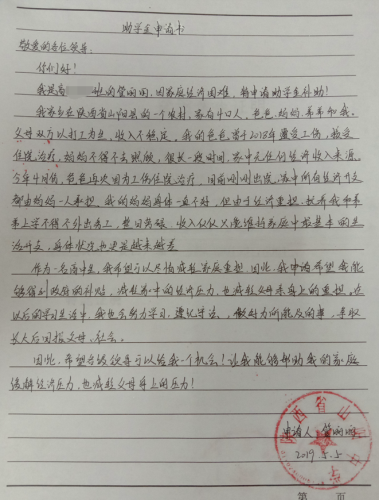 助学金申请书
敬爱的各位领导:
你们好!
我是高 班的管丽丽,因家庭经济困难,特申请助学金补助!
我家乡在陕西省山阳县的一个农村,家有4口人,爸爸、妈妈、弟弟和我。
父母双方以打工为生,收入不稳定,我的爸爸曾于2018年遭受工伤,接受
住院治疗,妈妈不得不去照顾,很长一段时间,家中无任何经济收入来源。
今年4月份,爸爸再次因为工伤住院治疗,目前刚刚出院,家中所有经济开支
都由妈妈一人承担,我的妈妈身体一直不好,但由于经济重担,抚养我和弟
弟上学不得不外出务工,整日劳碌,收入仅仅只能维持家庭中最基本的生
活开支,身体状况也更是越来越差
作为一名高中生,我希望可以尽快减轻家庭重担,因此,我申请希望我能
够得到政府的补贴,减轻家中的经济压力,也减轻父母亲身上的重担,在
以后的学习生活中,我也会努力学习,遵纪守法,做力所能及的事,争取
长大后回报父母、社会。
因此,希望各级领导可以给我一个机会!让我能够帮助我的家庭
缓解经济压力,也减轻父母身上的压力!
申请人:管丽丽
2019.5.5
陕西省山阳中学
第 页